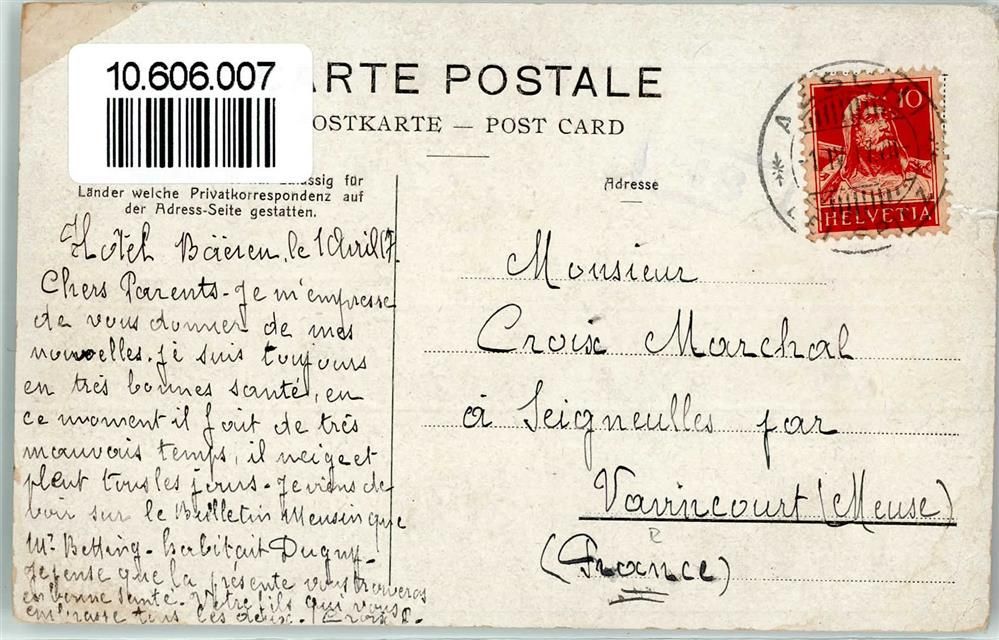 10.606.007
ARTE POSTALE
OSTKARTE — POST CARD
lässig für
Länder welche Privatkorrespondenz auf
der Adress-Seite gestatten.
Adresse
10
HELVETIA
Hotel Bäeren, le 1 Avril 17.
Chers Parents - Je m'empresse
de vous donner de mes
nouvelles. Je suis toujours
en très bonnes santé, en
ce moment il fait de très
mauvais temps, il neige et
pleut tous les jours - Je viens de
voir sur le Bulletin Meusin que
Mr. Betting - habitait Dugny -
Je pense que la présente vous trouveras
en bonne santé - Votre fils qui vous
embrasse tous les deux. Croix
Monsieur
Croix Marchal
à Seigneulles par
Vavincourt (Meuse)
(France)